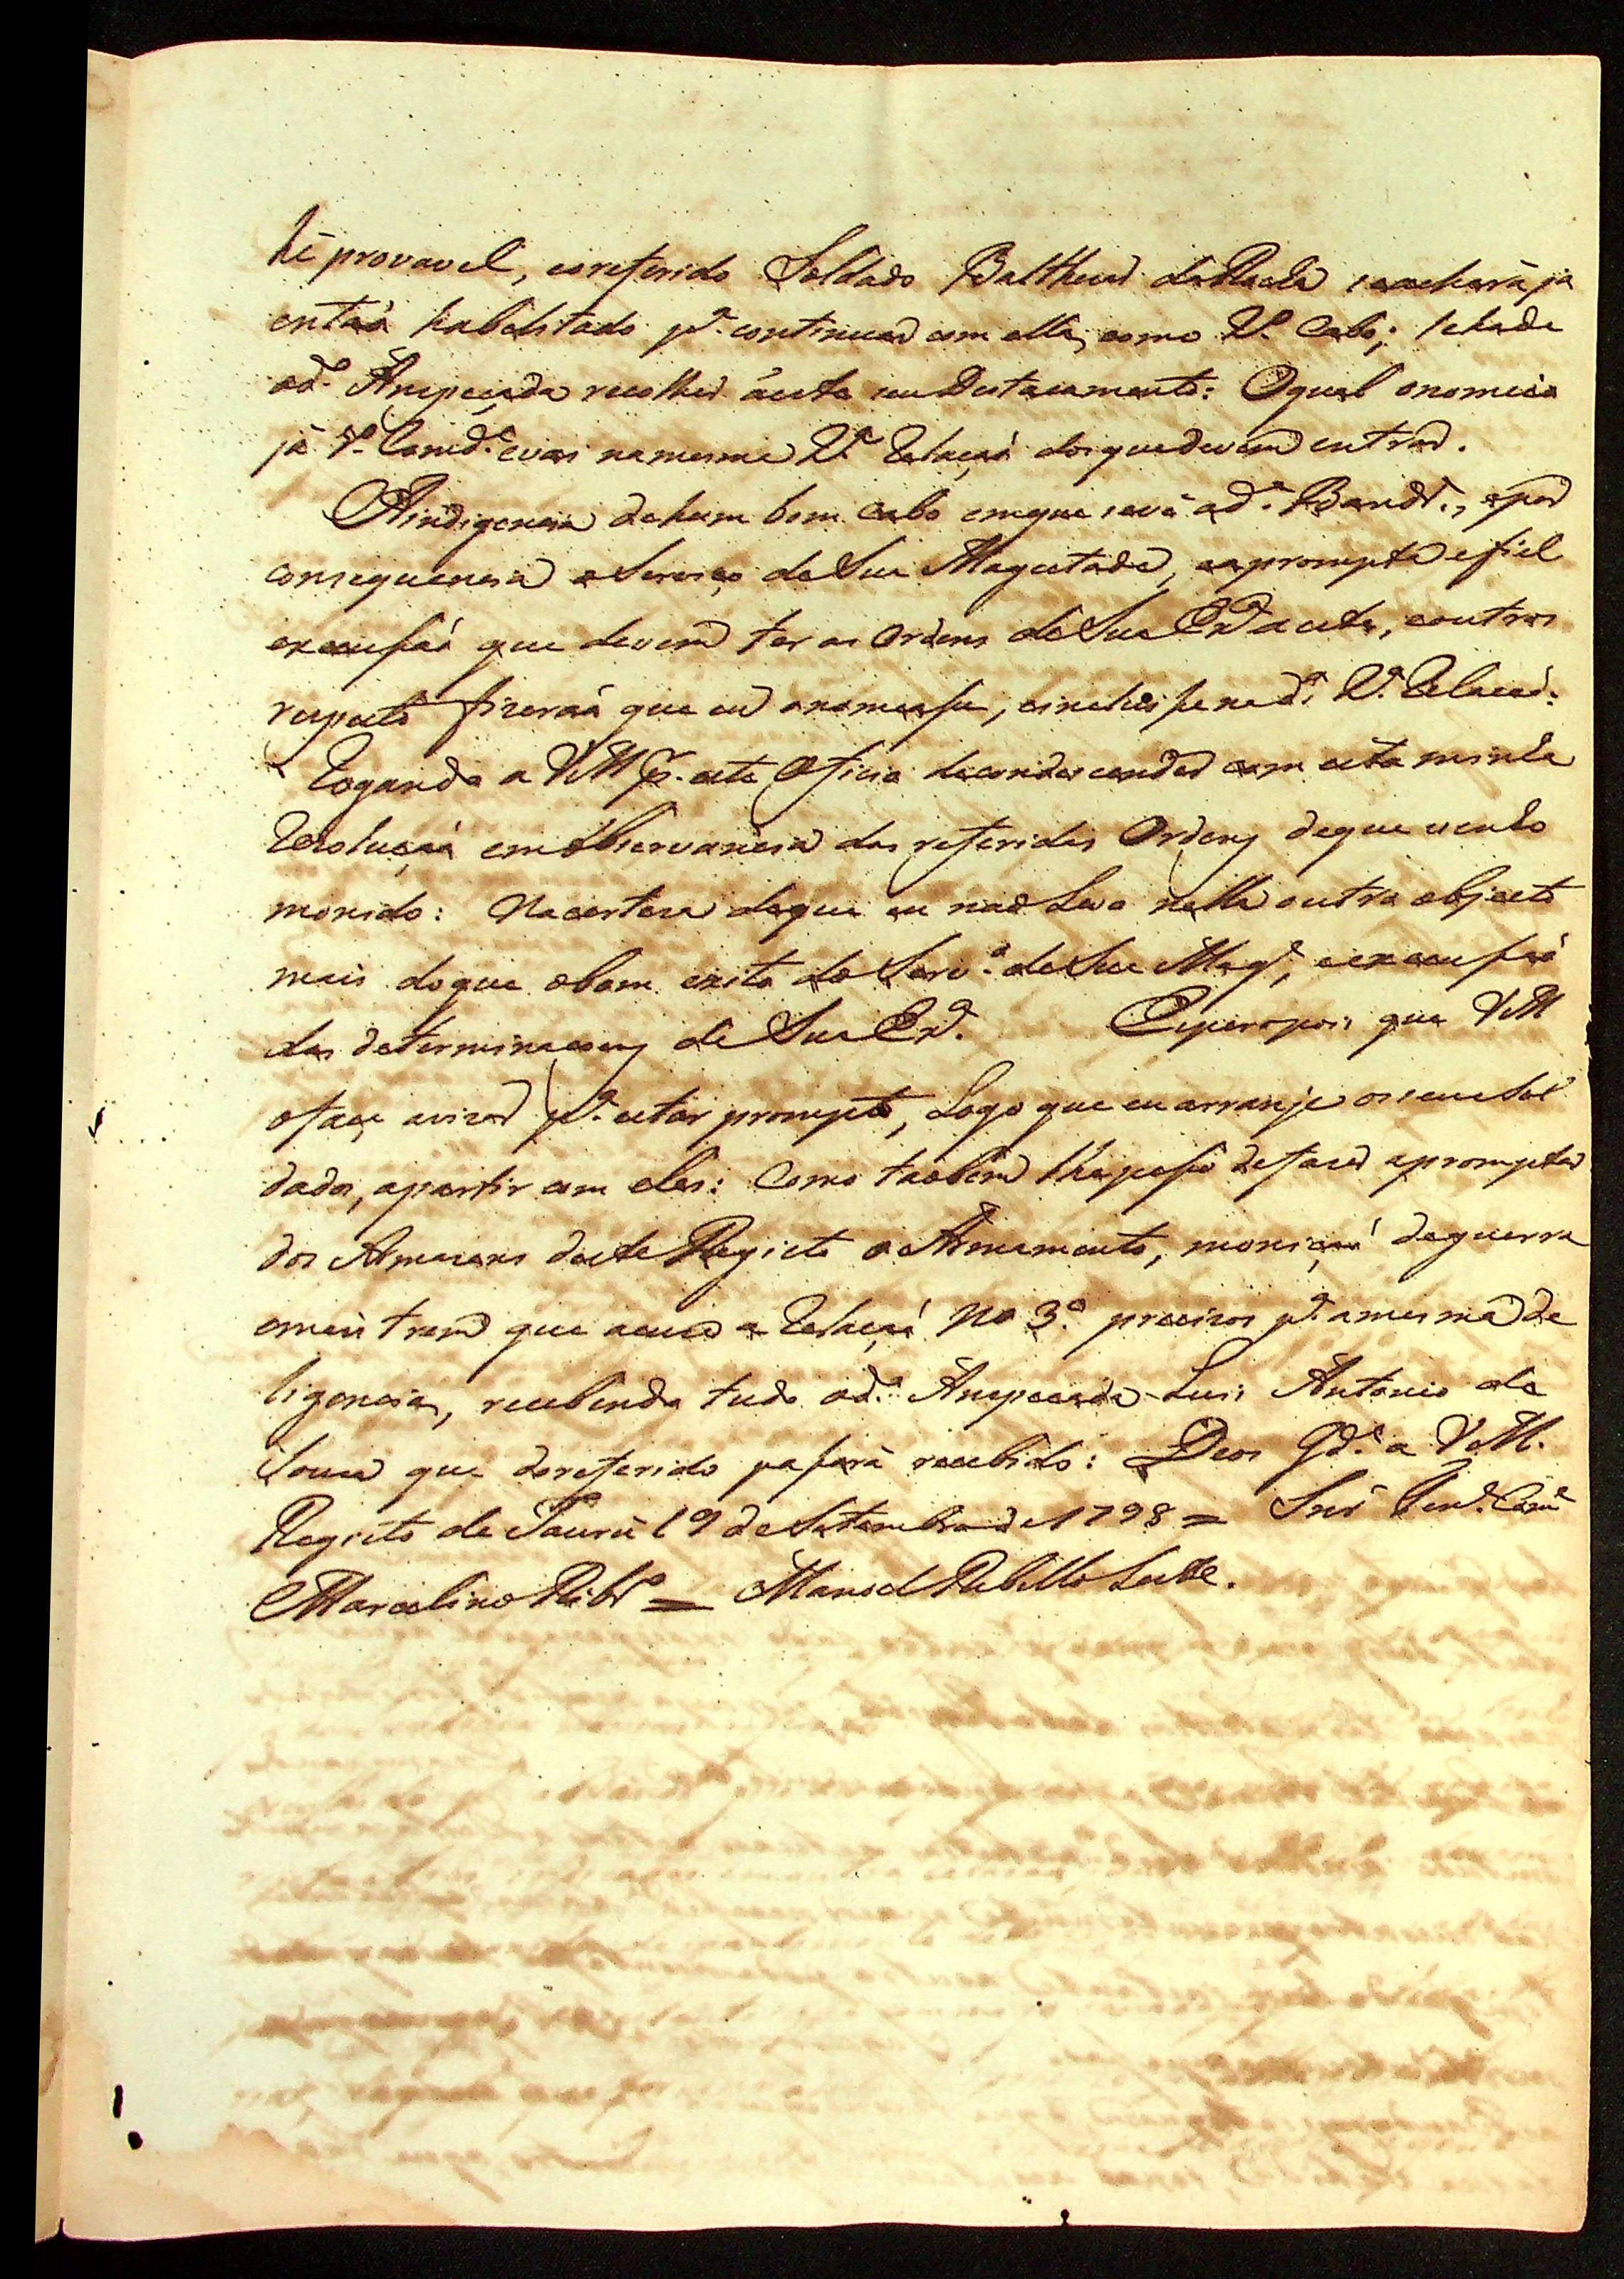 hé provavel, eoreferido Soldado Baltheus daRocha seachará ja
então habelitado p.ª continuar com elle, como V.º Cabo; ehade
od.º Anspeçada recolher áeste seuDestacamento: Oqual onomeio
já p.ª Comd.e evai namesma V.ª Relação dosquedevem entrar.
Aindigencia dehum bom Cabo emque sevê ad.ª Band.ª, epor
consequencia oServiço deSua Magestade, eaprompta efiel
execusão que devem ter as Ordens deSuaEx.ª aeste, eoutros
respeito fizerão que eu onomeasse, eincluisse na d.ª V.ª Relação:
Rogando a VM p.r este Oficio decondescender com esta minha
Rezolução emobservancia das referidas Ordens deque venho
monido: Nacerteza deque eu não Levo nella outro objecto
mais doque obom exito do Serv.º deSua Mag.e, eexecussão
das determinaçoens de Sua Ex.ª. Esperopois que VM
ofaça avizar p.ª estar prompto, Logo que eu arranje osseusSol
dados, apartir com eles: Como taobem lhepesso defazer aprompter
dos Armazens deste Registo o Armamento, monição deguerra
emais trem que acuza a Relação No 3.º precizos p.ª amesma de
ligencia, recebendo tudo od.º Anspeçada Luis Antonio de
Souza que doreferido passará recebido: Deos G.de a VM.
Registo de Taurú 19 deSetembro de 1798 = Snr Ten.e Com.e
Marcelino Rib.ro = Manoel Rebello Leite.